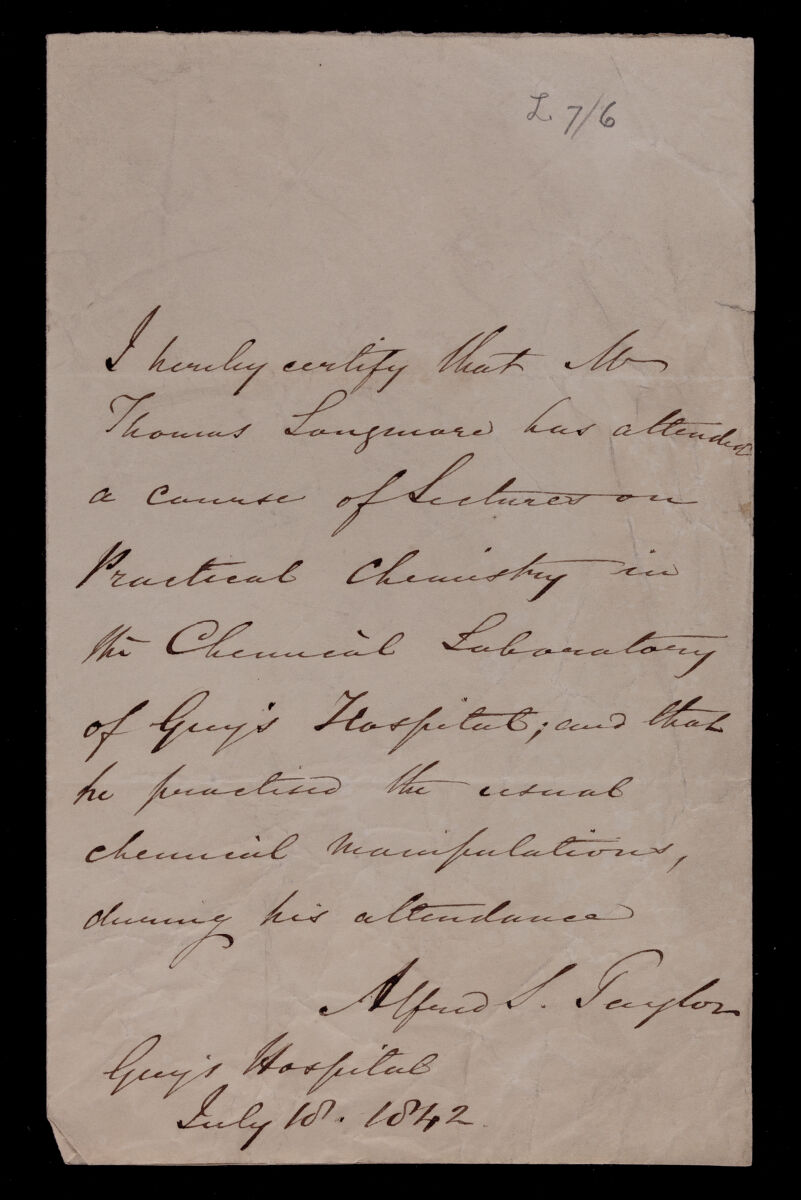 L 7/6
I hereby certify that Mr
Thomas Longmore has attended
a course of Lectures on
Practical Chemistry in
the Chemical Laboratory
of Guy's Hospital; and that
he practised the usual
chemical manipulations,
during his attendance
Alfred S. Taylor
Guy's Hospital
July 18. 1842.